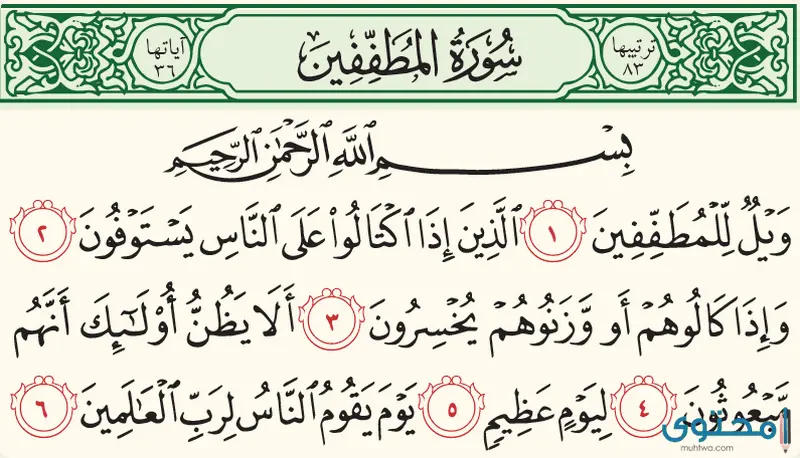 ترتيبها ٨٣ سُورَةُ المُطَفِّفِينَ آياتها ٣٦
بِسْمِ ٱللَّهِ ٱلرَّحْمَٰنِ ٱلرَّحِيمِ
وَيْلٌ لِّلْمُطَفِّفِينَ ١ ٱلَّذِينَ إِذَا ٱكْتَالُوا۟ عَلَى ٱلنَّاسِ يَسْتَوْفُونَ ٢
وَإِذَا كَالُوهُمْ أَو وَّزَنُوهُمْ يُخْسِرُونَ ٣ أَلَا يَظُنُّ أُو۟لَٰٓئِكَ أَنَّهُم
مَّبْعُوثُونَ ٤ لِيَوْمٍ عَظِيمٍ ٥ يَوْمَ يَقُومُ ٱلنَّاسُ لِرَبِّ ٱلْعَٰلَمِينَ ٦
محتوى
muhtwa.com